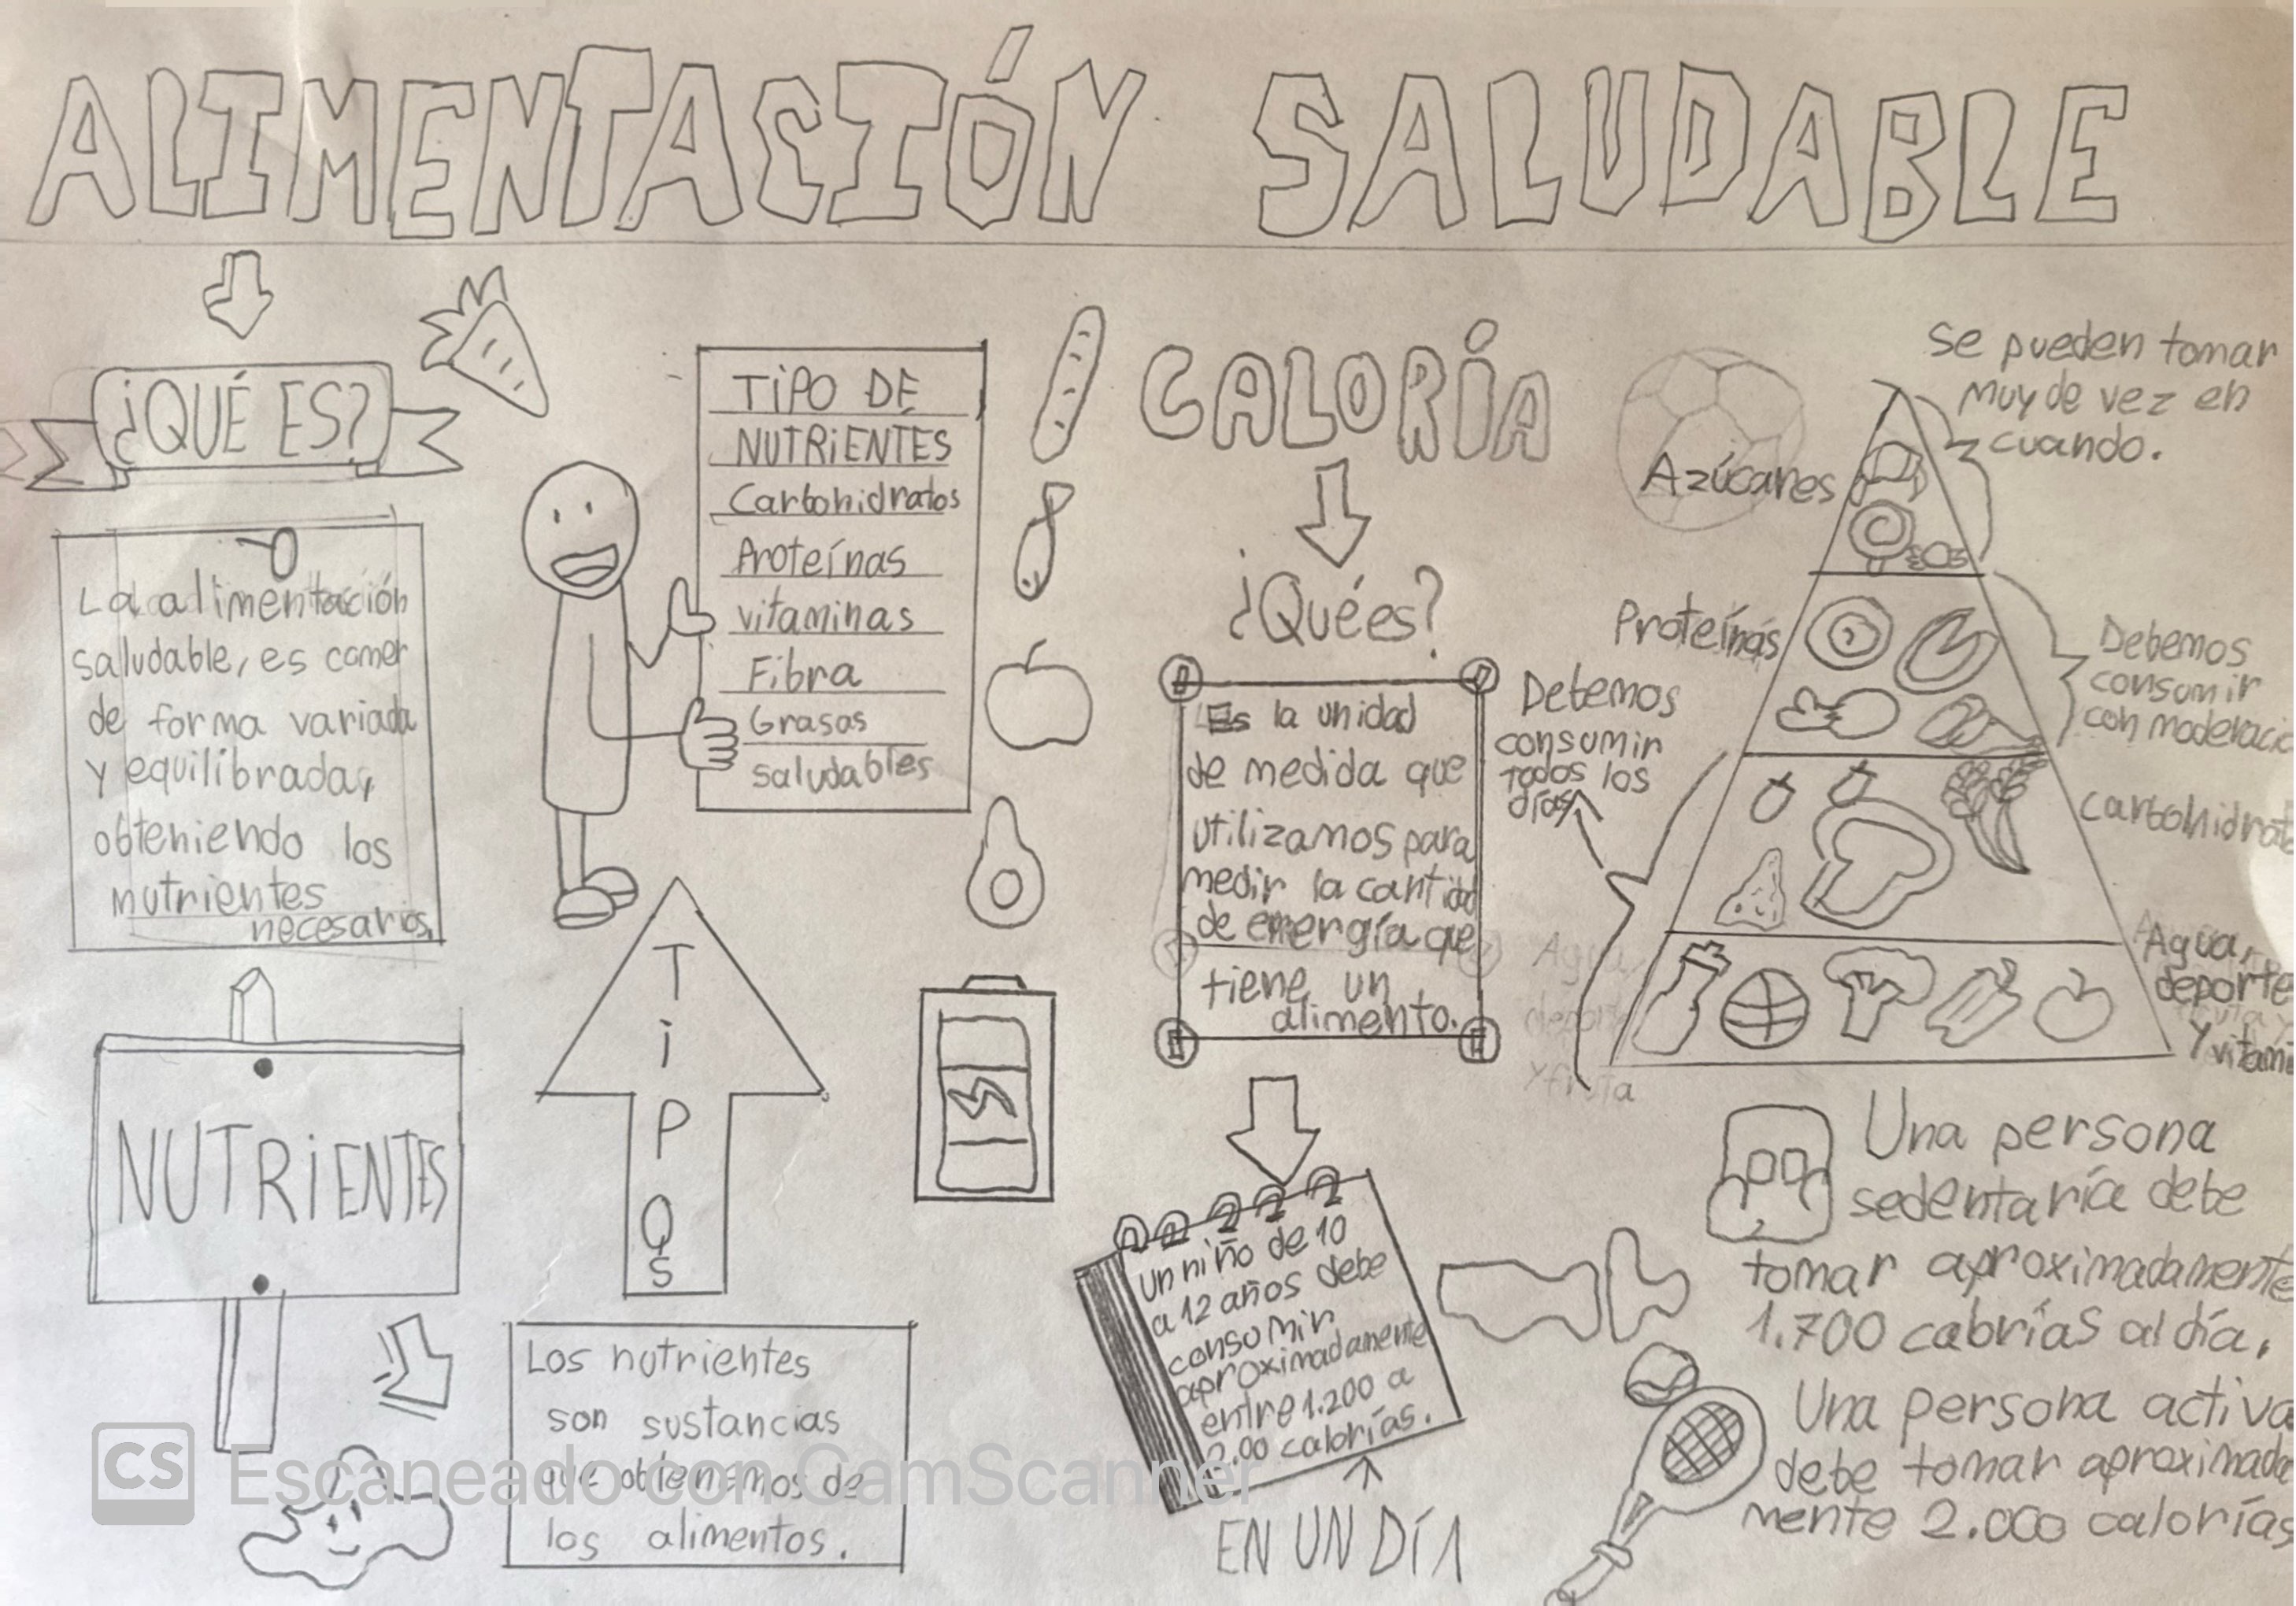 ALIMENTACIÓN SALUDABLE
¿QUÉ ES?
La alimentación
saludable, es comer
de forma variada
y equilibrada,
obteniendo los
nutrientes
necesarios.
NUTRiENTES
TiPO DE
NUTRiENTES
Carbohidratos
Proteínas
vitaminas
Fibra
Grasas
saludables
TiPOS
Los nutrientes
son sustancias
que obtenemos de
los alimentos.
CALORÍA
¿Qué es?
Es la unidad
de medida que
utilizamos para
medir la cantidad
de energía que
tiene un
alimento.
un niño de 10
a 12 años debe
consumir
aproximadamente
entre 1.200 a
2.00 calorías.
EN UN DÍA
se pueden tomar
muy de vez en
cuando.
Azúcares
Proteínas
Debemos
consumir
con moderació
Debemos
consumir
todos los
días
Carbohidrato
Agua,
deporte
y vitami
Agua,
deporte
y fruta
Una persona
sedentaría debe
tomar aproximadamente
1.700 calorías al día.
Una persona activa
debe tomar aproximada
mente 2.000 calorías
CS Escaneado con CamScanner